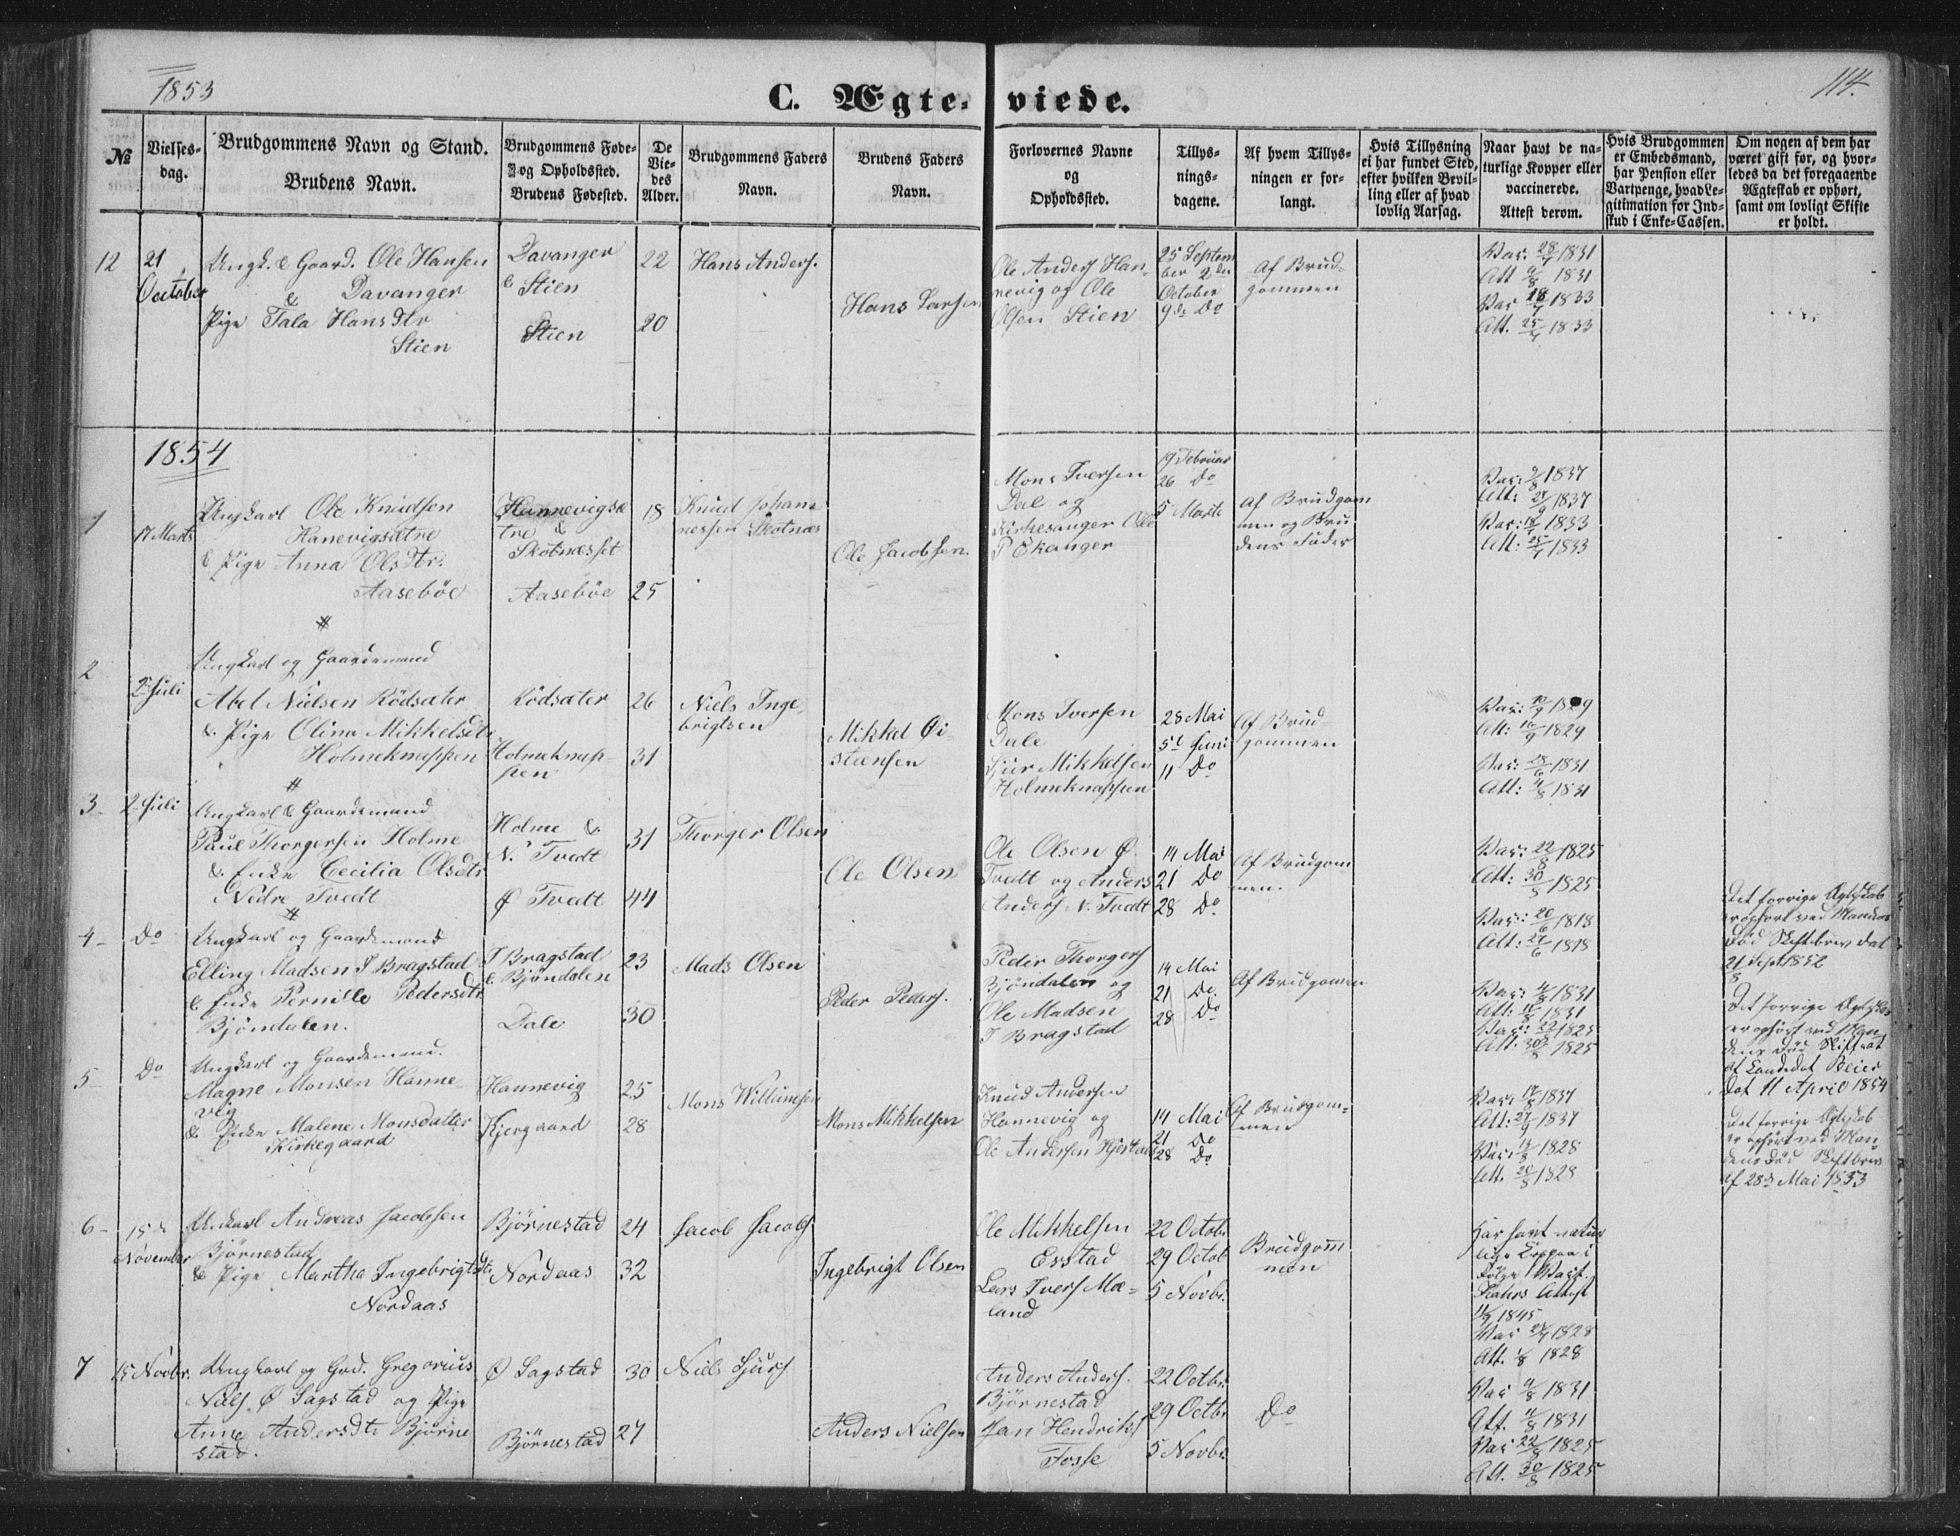 1853
114.
C. Ægte-viede.
№
Vielses-
dag.
Brudgommens Navn og Stand.
Brudens Navn.
Brudgommens Føde-
og Opholdssted.
Brudens Fødested.
De
Vie-
des
Alder.
Brudgommens Faders
Navn.
Brudens Faders
Navn.
Forlovernes Navne
og
Opholdssted.
Tillys-
nings-
dagene.
Af hvem Tillys-
ningen er for-
langt.
Hvis Tillysning
ei har fundet Sted,
efter hvilken Bevil-
ling eller af hvad
lovlig Aarsag.
Naar havt de na-
turlige Kopper eller
vaccinerede.
Attest derom.
Hvis Brudgommen
er Embedsmand,
har Pension eller
Vartpenge, hvad Le-
gitimation for Ind-
skud i Enke-Cassen.
Om nogen af dem har
været gift før, og hvor-
ledes da det foregaaende
Ægteskab er ophørt,
samt om lovligt Skifte
er holdt.
12
21
October
Ungk. & Gaard. Ole Hansen
Davanger
&
Pige Tala Hansdtr
Stien
Davanger
& Stien
Stien
22
20
Hans Anders.
Hans Larsen
Ole Anders Han-
nevig og Ole
Olsen Stien
25 Septem
ber 2den
October
9de Do
Af Brud-
gommen
Vac: 28/7 1831
Att 4/8 1831
Vac 18/7 1833
Att. 25/7 1833
1854
1
17 Marts
Ungkarl Ole Knudsen
Hanevigsætre
& Pige Anna Olsdtr.
Aasebøe
Hannevigsæ
tre &
Skotnesset
Aasebøe
18
25
Knud Johan-
nessen Skotnes
Ole Jacobsen
Mons Iversen
Dal og
Kirkesanger Ole
P Ekanger
19 Februar
26 Do
5 Marts
Af Brudgom
men og Bru
dens Fader
Vac: 9/8 1837
Att: 1837
Vac: 18/7 1833
Att: 25/7 1833
2
2 Juli
Ungkarl og Gaardemand
Abel Nielsen Rødsæter
& Pige Olina Mikkelsdtr
Holmeknappen
Rødsæter
Holmeknap-
pen
26
31
Niels Inge
brigtsen
Mikkel Øi-
stensen
Mons Iversen
Dale
Sjur Mikkelsen
Holmeknappen
28 Mai
5t Juni
11 Do
Af Brud-
gommen
Vac: 1829
Att: 16/9 1829
Vac: 28/6 1831
Att: 4/8 1831
3
2 Juli
Ungkarl & Gaardemand
Paul Thorgersen Holme
& Enke Cecilia Olsdtr
Nedre Tvedt
Holme &
N. Tvedt
Ø Tvedt
31
44
Thorger Olsen
Ole Olsen
Ole Olsen Ø.
Tvedt og Anders
Anders N. Tvedt
14 Mai
21 Do
28 Do
Af Brudgom
men.
Vac: 22/8 1825
Att: 30/8 1825
Vac: 20/6 1818
Att: 27/6 1818
Det forrige Ægteskab
er ophørt ved Mandens
Død Skiftebrev dat
21 Sept 1852
4
Do
Ungkarl og Gaardemand
Elling Madsen I Bragstad
& Enke Pernille Pedersdtr
Bjøndalen.
I Bragstad
& Bjøndalen
Dale
23
30
Mads Olsen
Peder Peders.
Peder Thorgers
Bjøndalen og
Ole Madsen
I Bragstad
14 Mai
21 Do
28 Do
Af Brudgommen
Vac: 4/8 1831
Att: 11/8 1831
Vac: 22/8 1825
Att: 30/8 1825
Det forrige Ægteskab
er ophørt ved Man
dens Død
dat 11 April 1854
5
Do
Ungkarl og Gaardemand.
Magne Monsen Hanne-
vig
& Enke Malene Monsdatter
Kirkegaard
Hannevig
Kjergaard
25
28
Mons Willumsen
Mons Mikkelsen
Knud Andersen
Hannevig og
Ole Andersen Hjertaas
14 Mai
21 Do
28 Do
Af Brudgom-
men
Vac: 1837
Att: 1837
Vac: 13/8 1828
Att. 20/8 1828
Det forrige Ægteskab
er ophørt ved Man
dens Død Skiftebrev
af 28de Mai 1853
6
15de
November
Ungkarl Andreas Jacobsen
Bjørnestad
& Pige Martha Ingebrigtsdtr
Nordaas
Bjørnestad
Nordaas
24
32
Jacob Jacobs
Ingebrigt Olsen
Ole Mikkelsen
Eststad
Lars Ivers Mæ-
land
22 Octobr.
29 Octob
5 Novbr.
Brudgom
men
Har havt natur
lige Kopper i
Følge Vacc.
Attest
1845
Vac 24/7 1828
Att. 1/8 1828
7
15 Novbr.
Ungkarl og Grd. Gregorius
Niels. Ø Sagstad og Pige
Anne Andersdtr Bjørne
stad.
Ø Sagstad
Bjørnestad
30
27
Niels Sjurs
Anders Nielsen
Anders Anders.
Bjørnestad
Jan Hendriks
Fosse
22 Octbr.
29 Octbr
5 Novbr.
Do
Vac 4/8 1831
Att. 11/8 1831
Vac 22/8 1825
Att. 30/8 1825